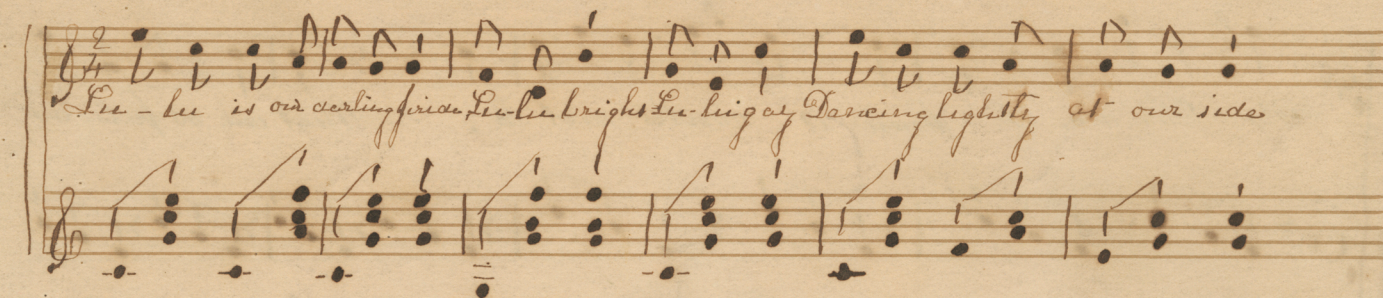 2/4
Lu-lu is our darling pride, Lu-lu bright Lu-lu gay Dancing lightly at our side